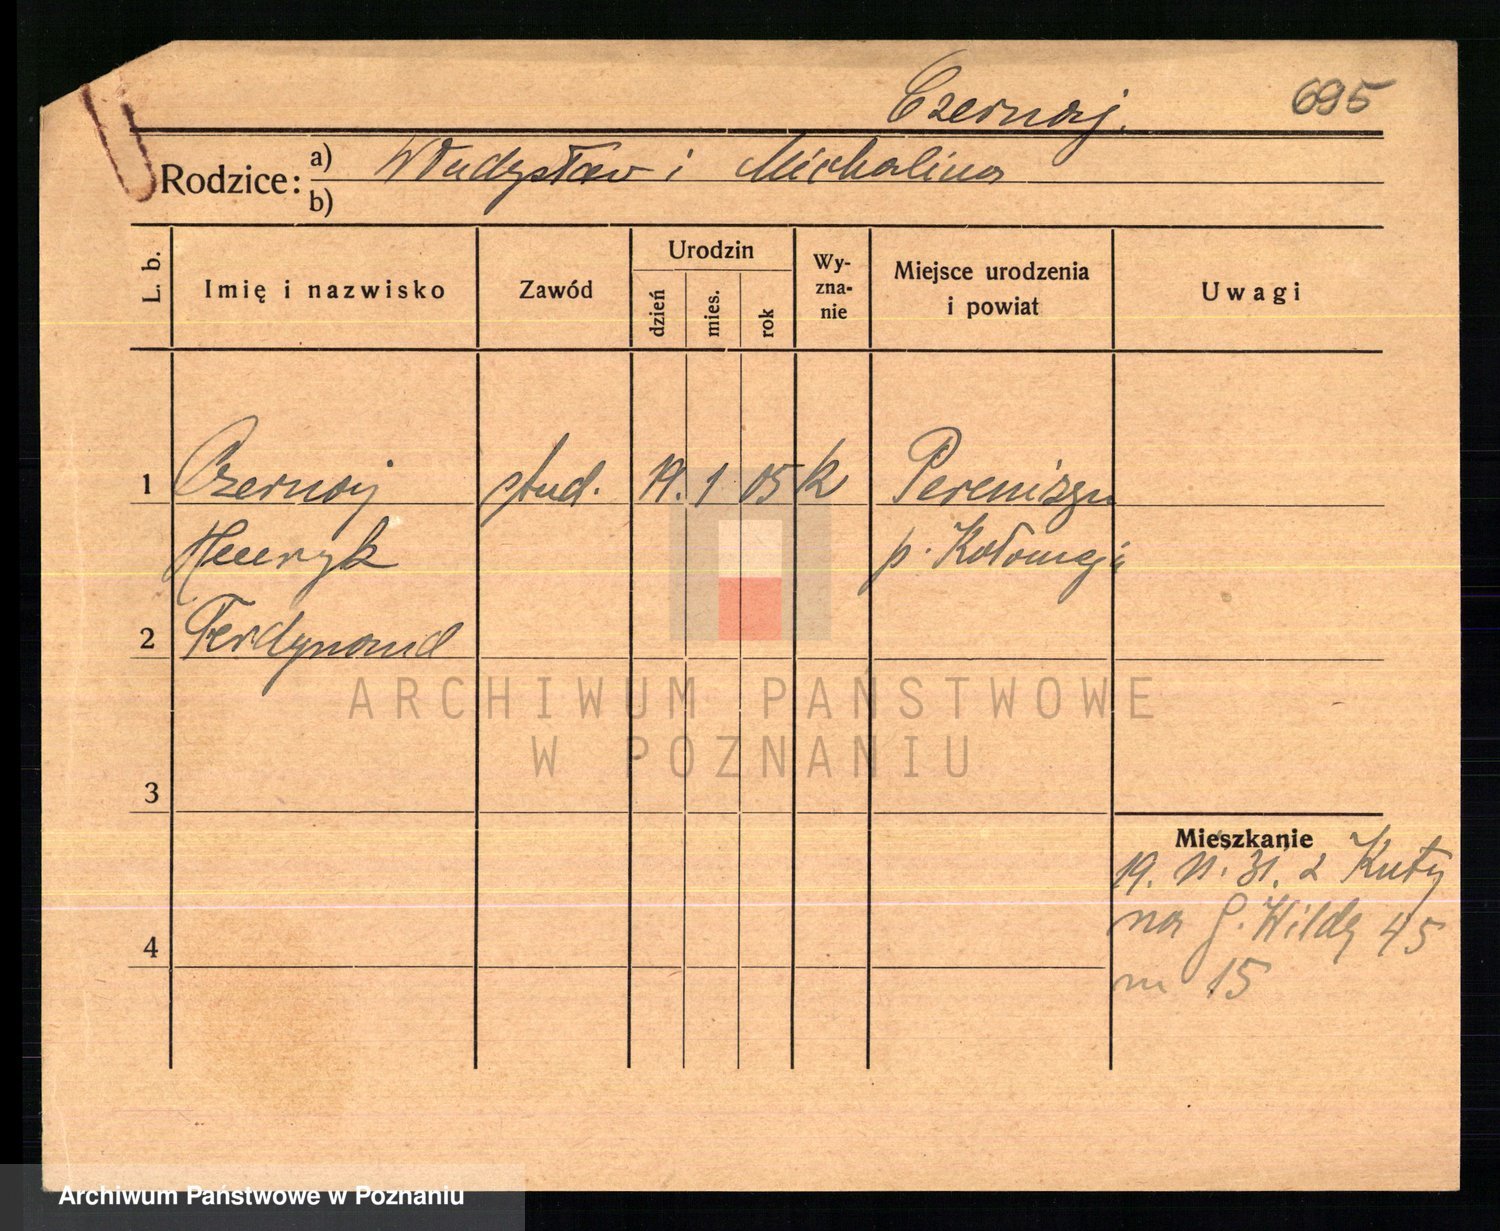 Czernaj. 695
Rodzice: a) Władysław i Michalina
b)
L. b. Imię i nazwisko Zawód Urodzin dzień mies. rok Wyznanie Miejsce urodzenia i powiat Uwagi
1 Czernaj stud. 19. 1 05 k
Henryk p. Kołomyja
2 Ferdynand
ARCHIWUM PAŃSTWOWE
W POZNANIU
3
Mieszkanie
19. 11. 31. z Kuty
4 na G. Wildę 45
m 15
Archiwum Państwowe w Poznaniu